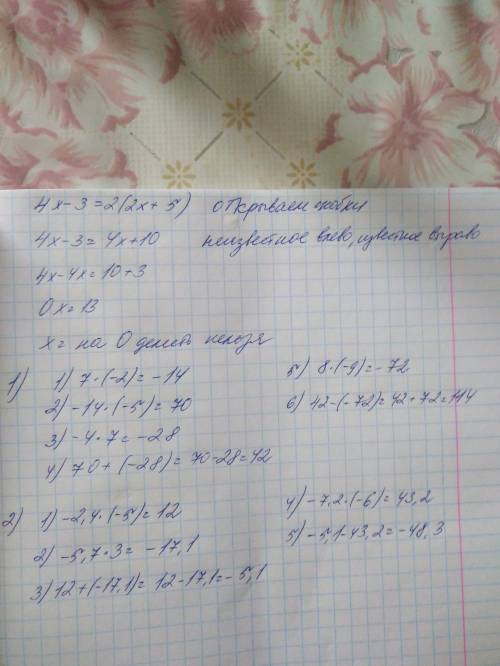 4x-3=2(2x+5) открываем скобки
4x-3=4x+10 неизвестное влево, известное вправо
4x-4x=10+3
0x=13
x= на 0 делить нельзя
1) 1) 7·(-2)=-14
2) -14·(-5)=70
3) -4·7=-28
4) 70+(-28)=70-28=42
5) 8·(-9)=-72
6) 42-(-72)=42+72=114
2) 1) -2,4·(-5)=12
2) -5,7·3=-17,1
3) 12+(-17,1)=12-17,1=-5,1
4) -7,2·(-6)=43,2
5) -5,1-43,2=-48,3